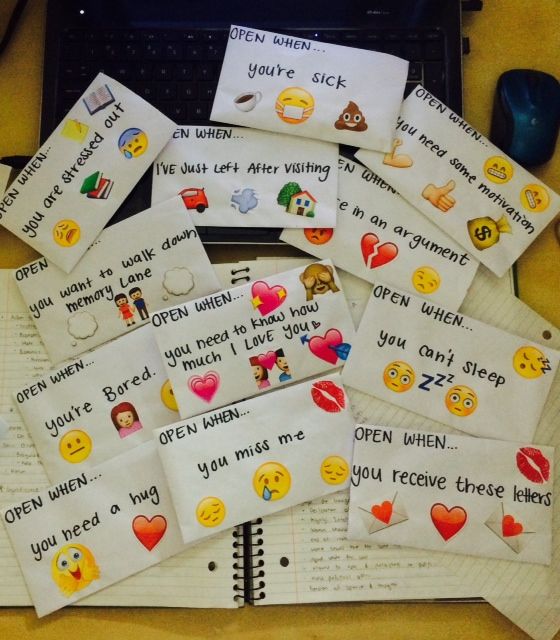 OPEN WHEN...
you're sick
OPEN WHEN...
you are stressed out
WHEN...
I'VE Just Left After Visiting
OPEN WHEN...
you need some motivation
WHEN...
in an argument
OPEN
you want to walk down
memory Lane
OPEN WHEN...
you need to know how
much I LOVE you
OPEN WHEN...
you can't sleep
zzz
OPEN WHEN...
you're Bored.
OPEN WHEN...
you miss me
OPEN WHEN...
you receive these letters
OPEN WHEN...
you need a hug